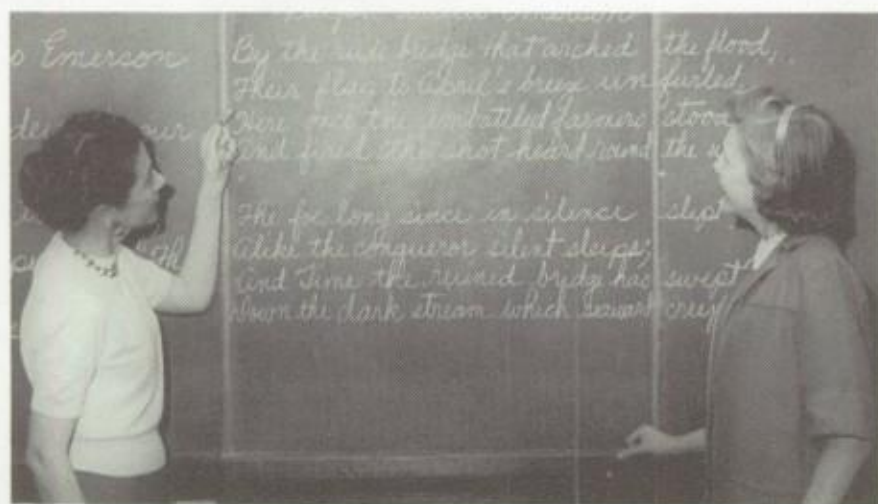 Emerson
Emerson
By the rude bridge that arched the flood,
Their flag to April's breeze unfurled,
Here once the embattled farmers stood
And fired the shot heard round the
The foe long since in silence slept
Alike the conqueror silent sleeps;
And Time the ruined bridge has swept
Down the dark stream which seaward